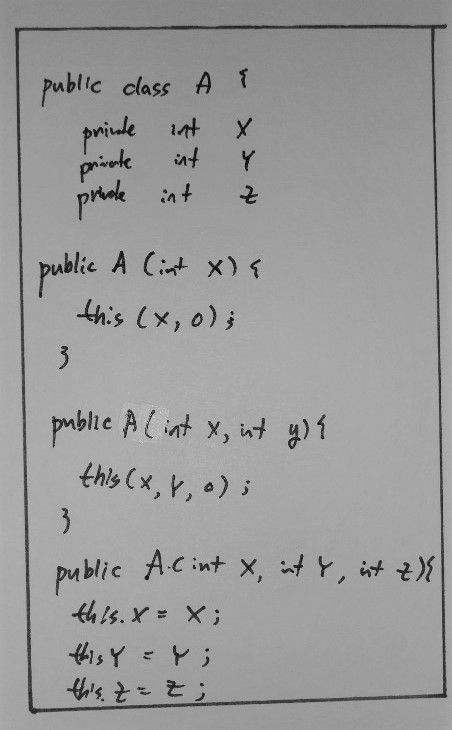 public class A {
private int X
private int Y
private int Z
public A (int X) {
this (X, 0);
}
public A (int X, int y) {
this (X, Y, 0);
}
public A (int X, int Y, int Z) {
this.X = X;
this Y = Y;
this.Z = Z;